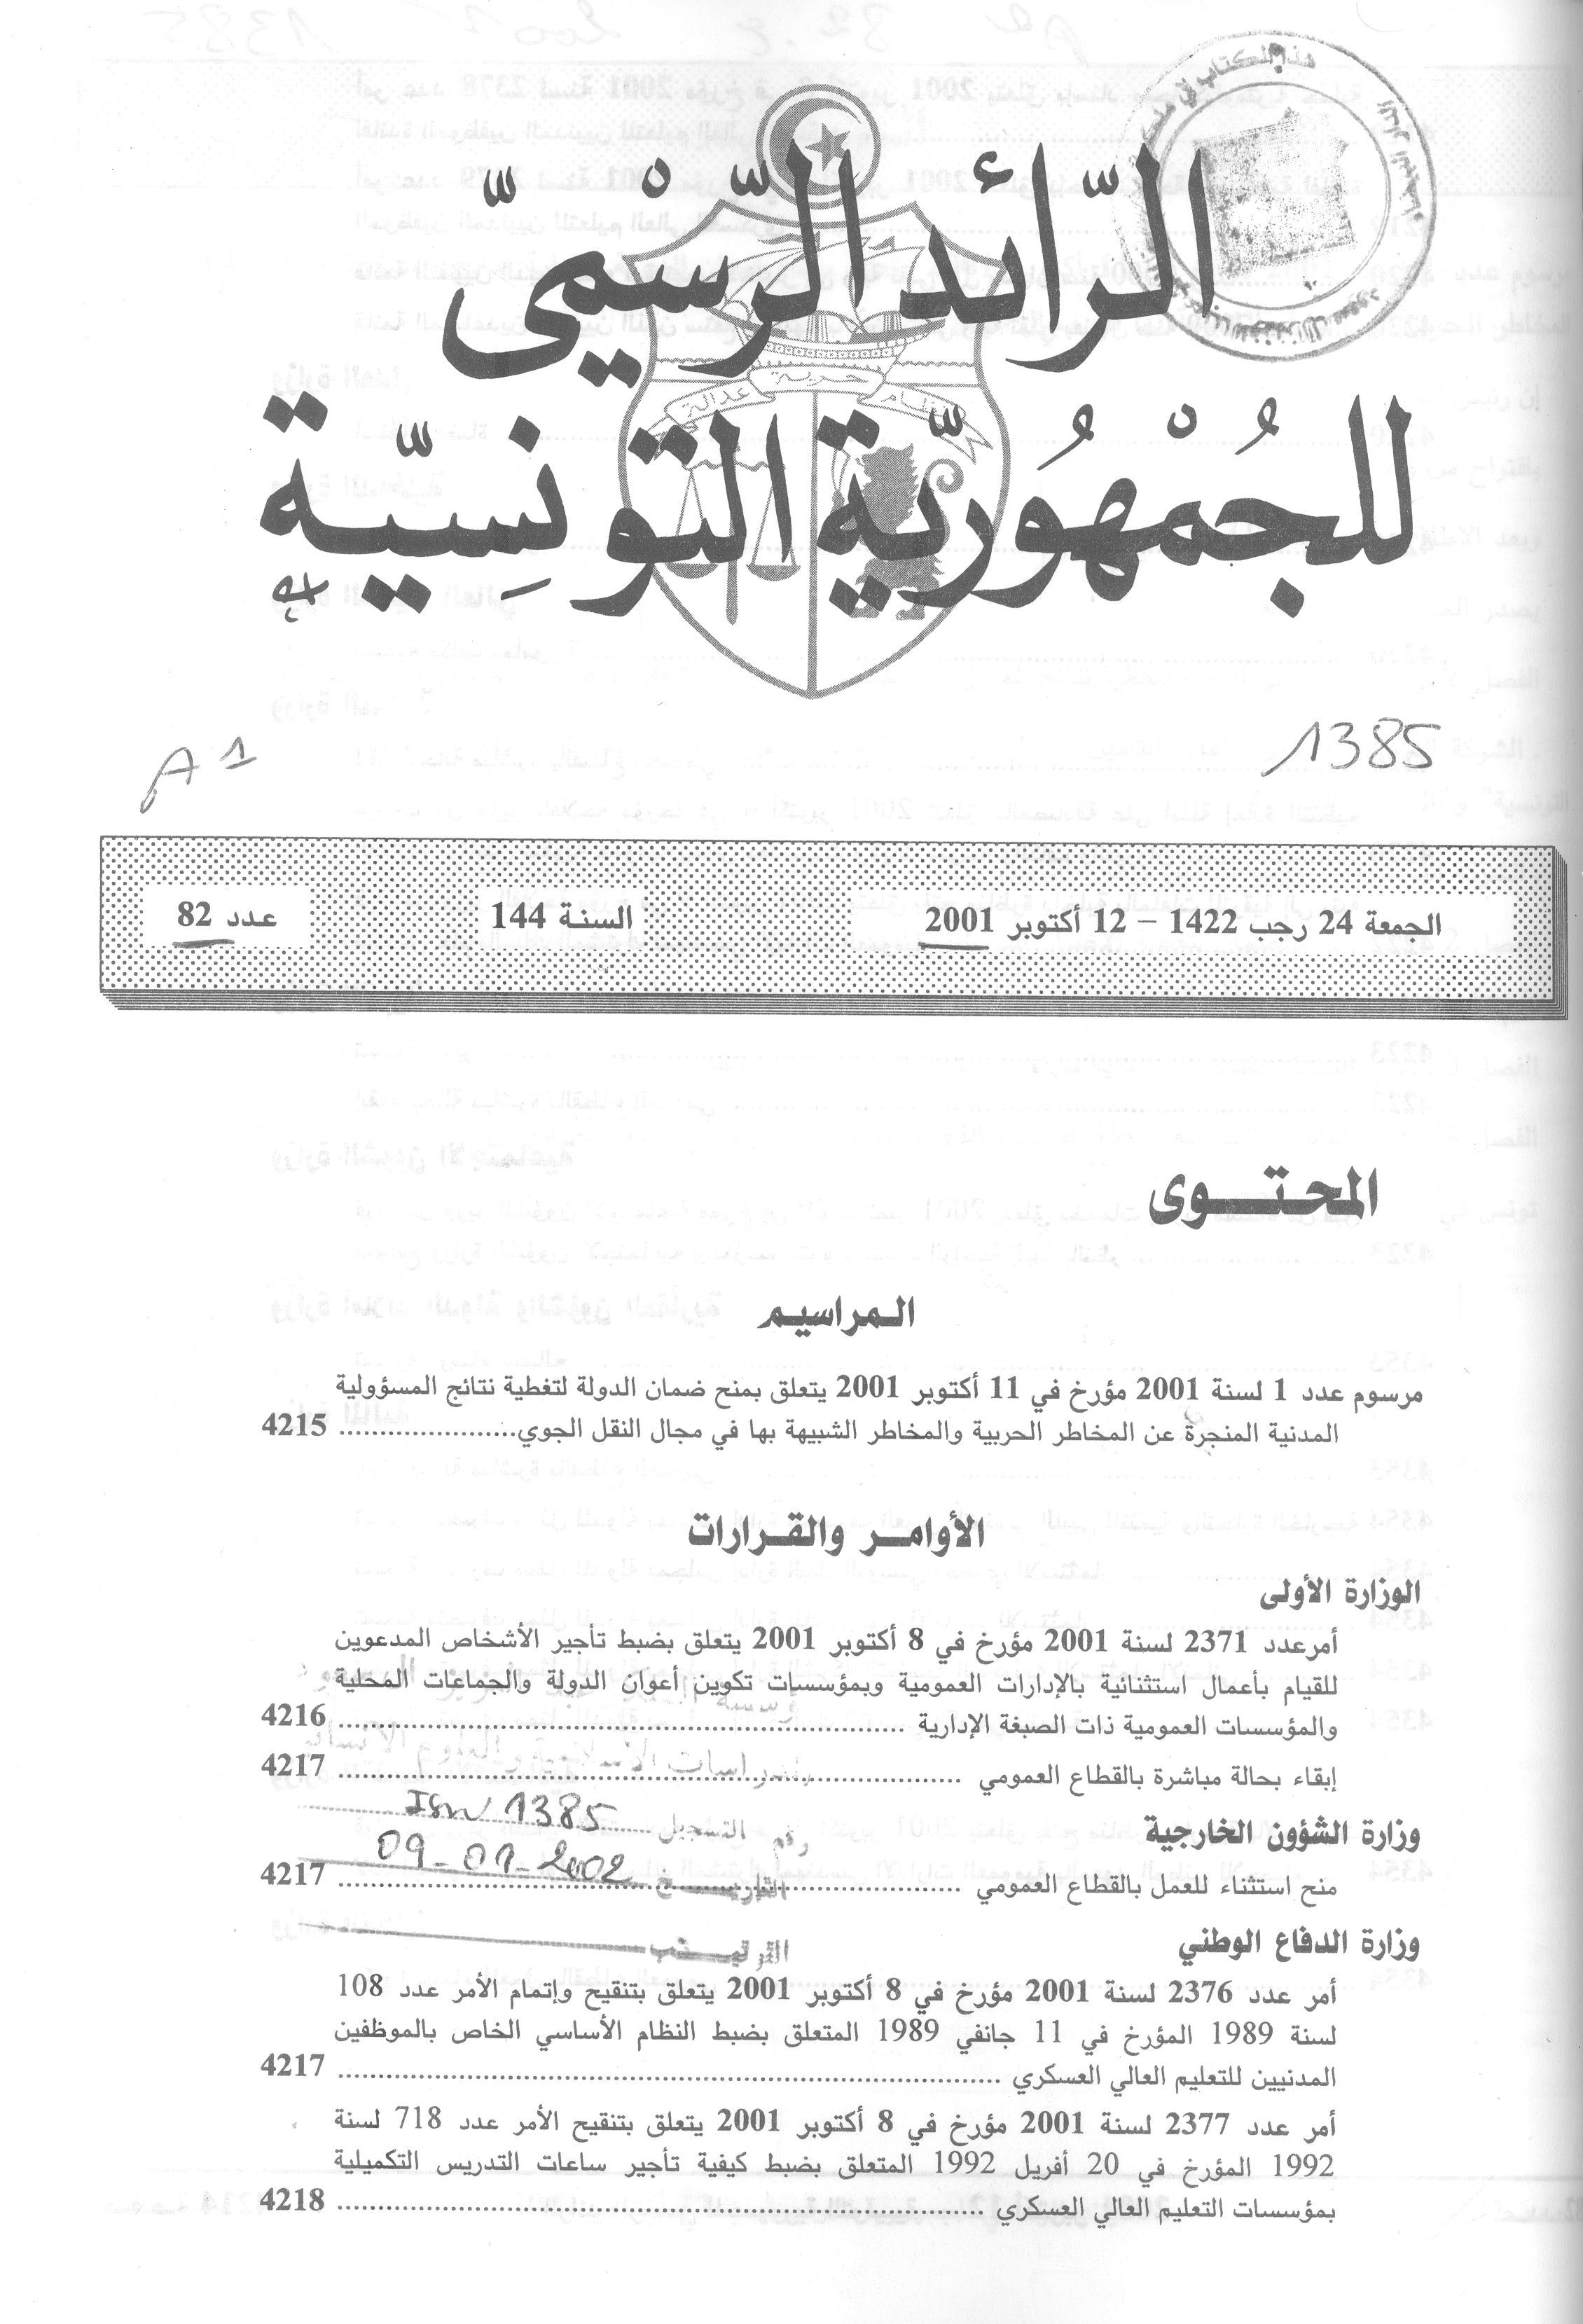 الرّائد الرّسْميّ
للجُمْهُوريّة التونِسيّة
عدالة
حرية
نظام
A1
1385
الجمعة 24 رجب 1422 – 12 أكتوبر 2001
السنة 144
عدد 82
المحتوى
المراسيم
مرسوم عدد 1 لسنة 2001 مؤرخ في 11 أكتوبر 2001 يتعلق بمنح ضمان الدولة لتغطية نتائج المسؤولية
المدنية المنجرة عن المخاطر الحربية والمخاطر الشبيهة بها في مجال النقل الجوي 4215
الأوامر والقرارات
الوزارة الأولى
أمرعدد 2371 لسنة 2001 مؤرخ في 8 أكتوبر 2001 يتعلق بضبط تأجير الأشخاص المدعوين
للقيام بأعمال استثنائية بالإدارات العمومية وبمؤسسات تكوين أعوان الدولة والجماعات المحلية
والمؤسسات العمومية ذات الصبغة الإدارية 4216
إبقاء بحالة مباشرة بالقطاع العمومي 4217
رقم التسجيل 1385
وزارة الشؤون الخارجية
التاريخ 09-01-2002
منح استثناء للعمل بالقطاع العمومي 4217
الترتيب
وزارة الدفاع الوطني
أمر عدد 2376 لسنة 2001 مؤرخ في 8 أكتوبر 2001 يتعلق بتنقيح وإتمام الأمر عدد 108
لسنة 1989 المؤرخ في 11 جانفي 1989 المتعلق بضبط النظام الأساسي الخاص بالموظفين
المدنيين للتعليم العالي العسكري 4217
أمر عدد 2377 لسنة 2001 مؤرخ في 8 أكتوبر 2001 يتعلق بتنقيح الأمر عدد 718 لسنة
1992 المؤرخ في 20 أفريل 1992 المتعلق بضبط كيفية تأجير ساعات التدريس التكميلية
بمؤسسات التعليم العالي العسكري 4218